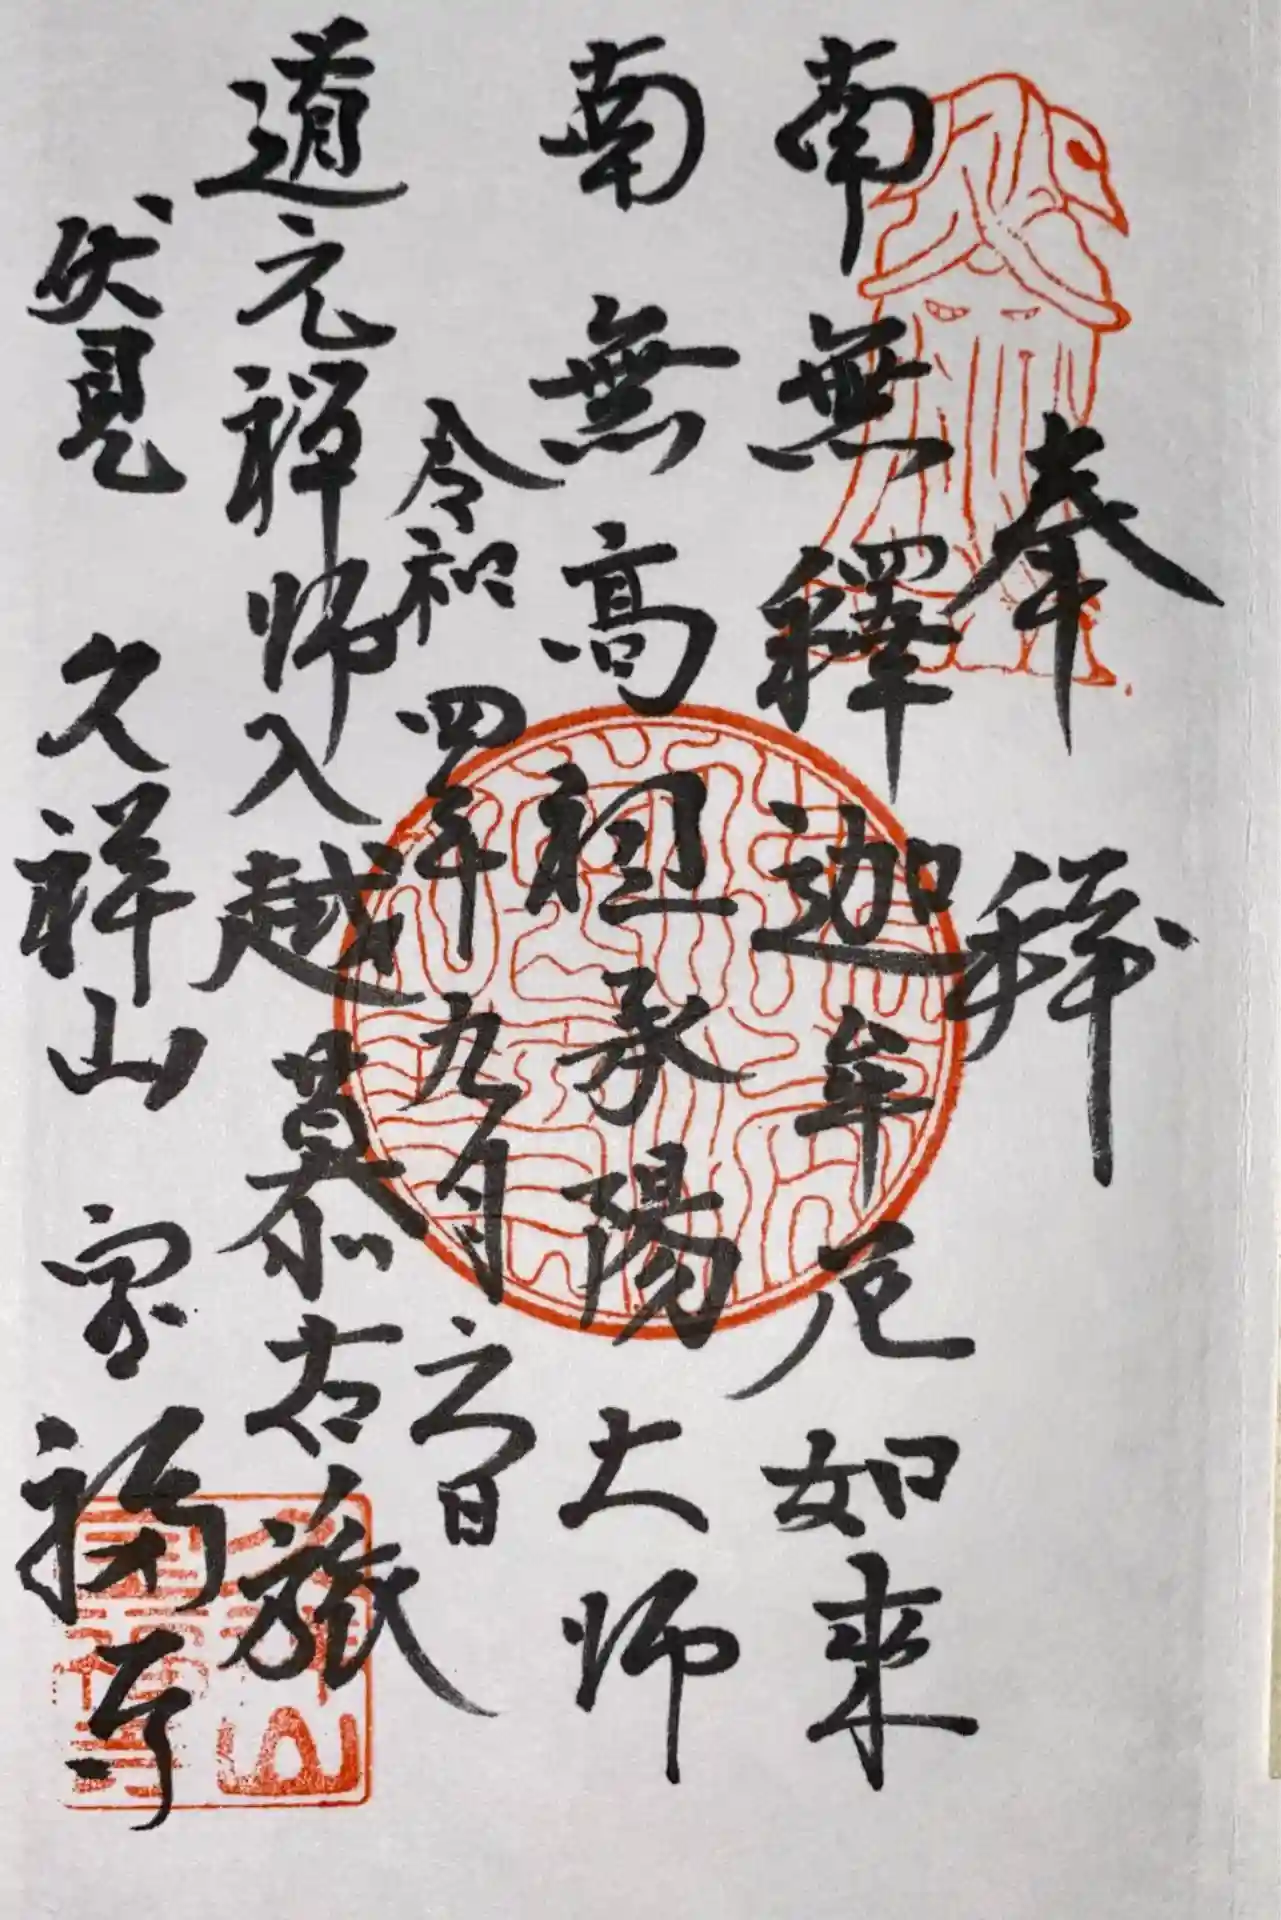 奉拜
南無釋迦牟尼如来
南無高祖承陽大师
令和四年九月之日
道元禅师入越慕古
伏見 久祥山 宝福寺